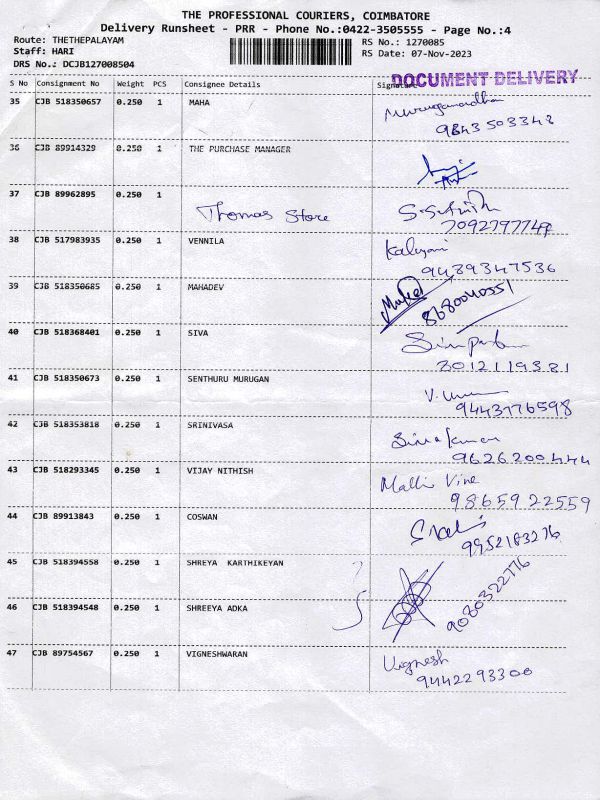 THE PROFESSIONAL COURIERS, COIMBATORE
Delivery Runsheet - PRR - Phone No.:0422-3505555 - Page No.:4
Route: THETHEPALAYAM RS No.: 1270085
Staff: HARI RS Date: 07-Nov-2023
DRS No.: DCJB127008504
DOCUMENT DELIVERY
S No Consignment No Weight PCS Consignee Details Signature
35 CJB 518350657 0.250 1 MAHA
9843503342
36 CJB 89914329 0.250 1 THE PURCHASE MANAGER
37 CJB 89962895 0.250 1
Thomas Store
7092797749
38 CJB 517983935 0.250 1 VENNILA Kalyani
9489347536
39 CJB 518350685 0.250 1 MAHADEV
8680040551
40 CJB 518368401 0.250 1 SIVA
41 CJB 518350673 0.250 1 SENTHURU MURUGAN
9443776598
42 CJB 518353818 0.250 1 SRINIVASA Sivakumar
9626200444
43 CJB 518293345 0.250 1 VIJAY NITHISH
9865922559
44 CJB 89913843 0.250 1 COSWAN
9952183276
45 CJB 518394558 0.250 1 SHREYA KARTHIKEYAN
46 CJB 518394548 0.250 1 SHREEYA ADKA
9080322776
47 CJB 89754567 0.250 1 VIGNESHWARAN Vignesh
9442293300